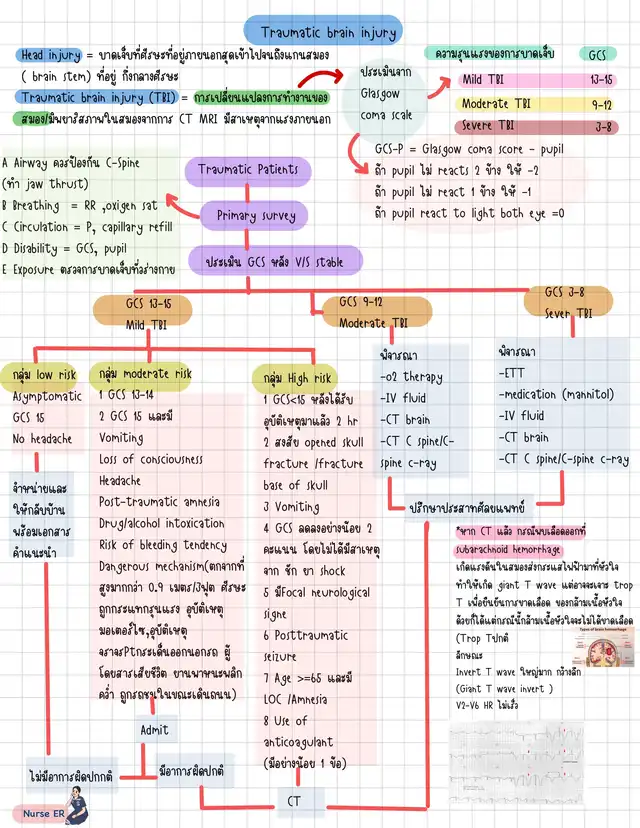 Traumatic brain injury
Head injury = บาดเจ็บที่ศีรษะที่อยู่ภายนอกสุดเข้าไปจนถึงแกนสมอง
( brain stem) ที่อยู่ กึ่งกลางศีรษะ
Traumatic brain injury (TBI) = การเปลี่ยนแปลงการทำงานของ
สมอง/มีพยาธิสภาพในสมองจากการ CT MRI มีสาเหตุจากแรงภายนอก
ประเมินจาก
Glasgow
coma scale
ความรุนแรงของการบาดเจ็บ GCS
Mild TBI 13-15
Moderate TBI 9-12
Severe TBI 3-8
GCS-P = Glasgow coma score - pupil
ถ้า pupil ไม่ reacts 2 ข้าง ให้ -2
ถ้า pupil ไม่ react 1 ข้าง ให้ -1
ถ้า pupil react to light both eye =0
A Airway ควรป้องกัน C-Spine
(ทำ jaw thrust)
B Breathing = RR ,oxigen sat
C Circulation = P, capillary refill
D Disability = GCS, pupil
E Exposure ตรวจการบาดเจ็บที่ร่างกาย
Traumatic Patients
Primary survey
ประเมิน GCS หลัง V/S stable
GCS 13-15
Mild TBI
GCS 9-12
Moderate TBI
GCS 3-8
Sever TBI
กลุ่ม low risk
Asymptomatic
GCS 15
No headache
จำหน่ายและ
ให้กลับบ้าน
พร้อมเอกสาร
คำแนะนำ
กลุ่ม moderate risk
1 GCS 13-14
2 GCS 15 และมี
Vomiting
Loss of consciousness
Headache
Post-traumatic amnesia
Drug/alcohol intoxication
Risk of bleeding tendency
Dangerous mechanism(ตกจากที่
สูงมากกว่า 0.9 เมตร/3ฟุต ศีรษะ
ถูกกระแทกรุนแรง อุบัติเหตุ
มอเตอร์ไซ,อุบัติเหตุ
จราจรPtกระเด็นออกนอกรถ ผู้
โดยสารเสียชีวิต ยานพาหนะพลิก
คว่ำ ถูกรถชนในขณะเดินถนน)
กลุ่ม High risk
1 GCS<15 หลังได้รับ
อุบัติเหตุมาแล้ว 2 hr
2 สงสัย opened skull
fracture /fracture
base of skull
3 Vomiting
4 GCS ลดลงอย่างน้อย 2
คะแนน โดยไม่ได้มีสาเหตุ
จาก ชัก ยา shock
5 มีFocal neurological
signe
6 Posttraumatic
seizure
7 Age >=65 และมี
LOC /Amnesia
8 Use of
anticoagulant
(มีอย่างน้อย 1 ข้อ)
พิจารณา
-o2 therapy
-IV fluid
-CT brain
-CT C spine/C-
spine c-ray
พิจารณา
-ETT
-medication (mannitol)
-IV fluid
-CT brain
-CT C spine/C-spine c-ray
ปรึกษาประสาทศัลยแพทย์
*หาก CT แล้ว กรณีพบเลือดออกที่
subarachnoid hemorrhage
เกิดแรงดันในสมองส่งกระแสไฟฟ้ามาที่หัวใจ
ทำให้เกิด giant T wave แต่อาจจะเจาะ trop
T เพื่อยืนยันการขาดเลือด ของกล้ามเนื้อหัวใจ
ด้วยก็ได้แต่กรณีนี้กล้ามเนื้อหัวใจจะไม่ได้ขาดเลือด
(Trop Tปกติ
ลักษณะ
Invert T wave ใหญ่มาก กว้างลึก
(Giant T wave invert )
V2-V6 HR ไม่เร็ว
Types of brain hemorrhage
Admit
ไม่มีอาการผิดปกกติ
มีอาการผิดปกติ
CT
Nurse ER